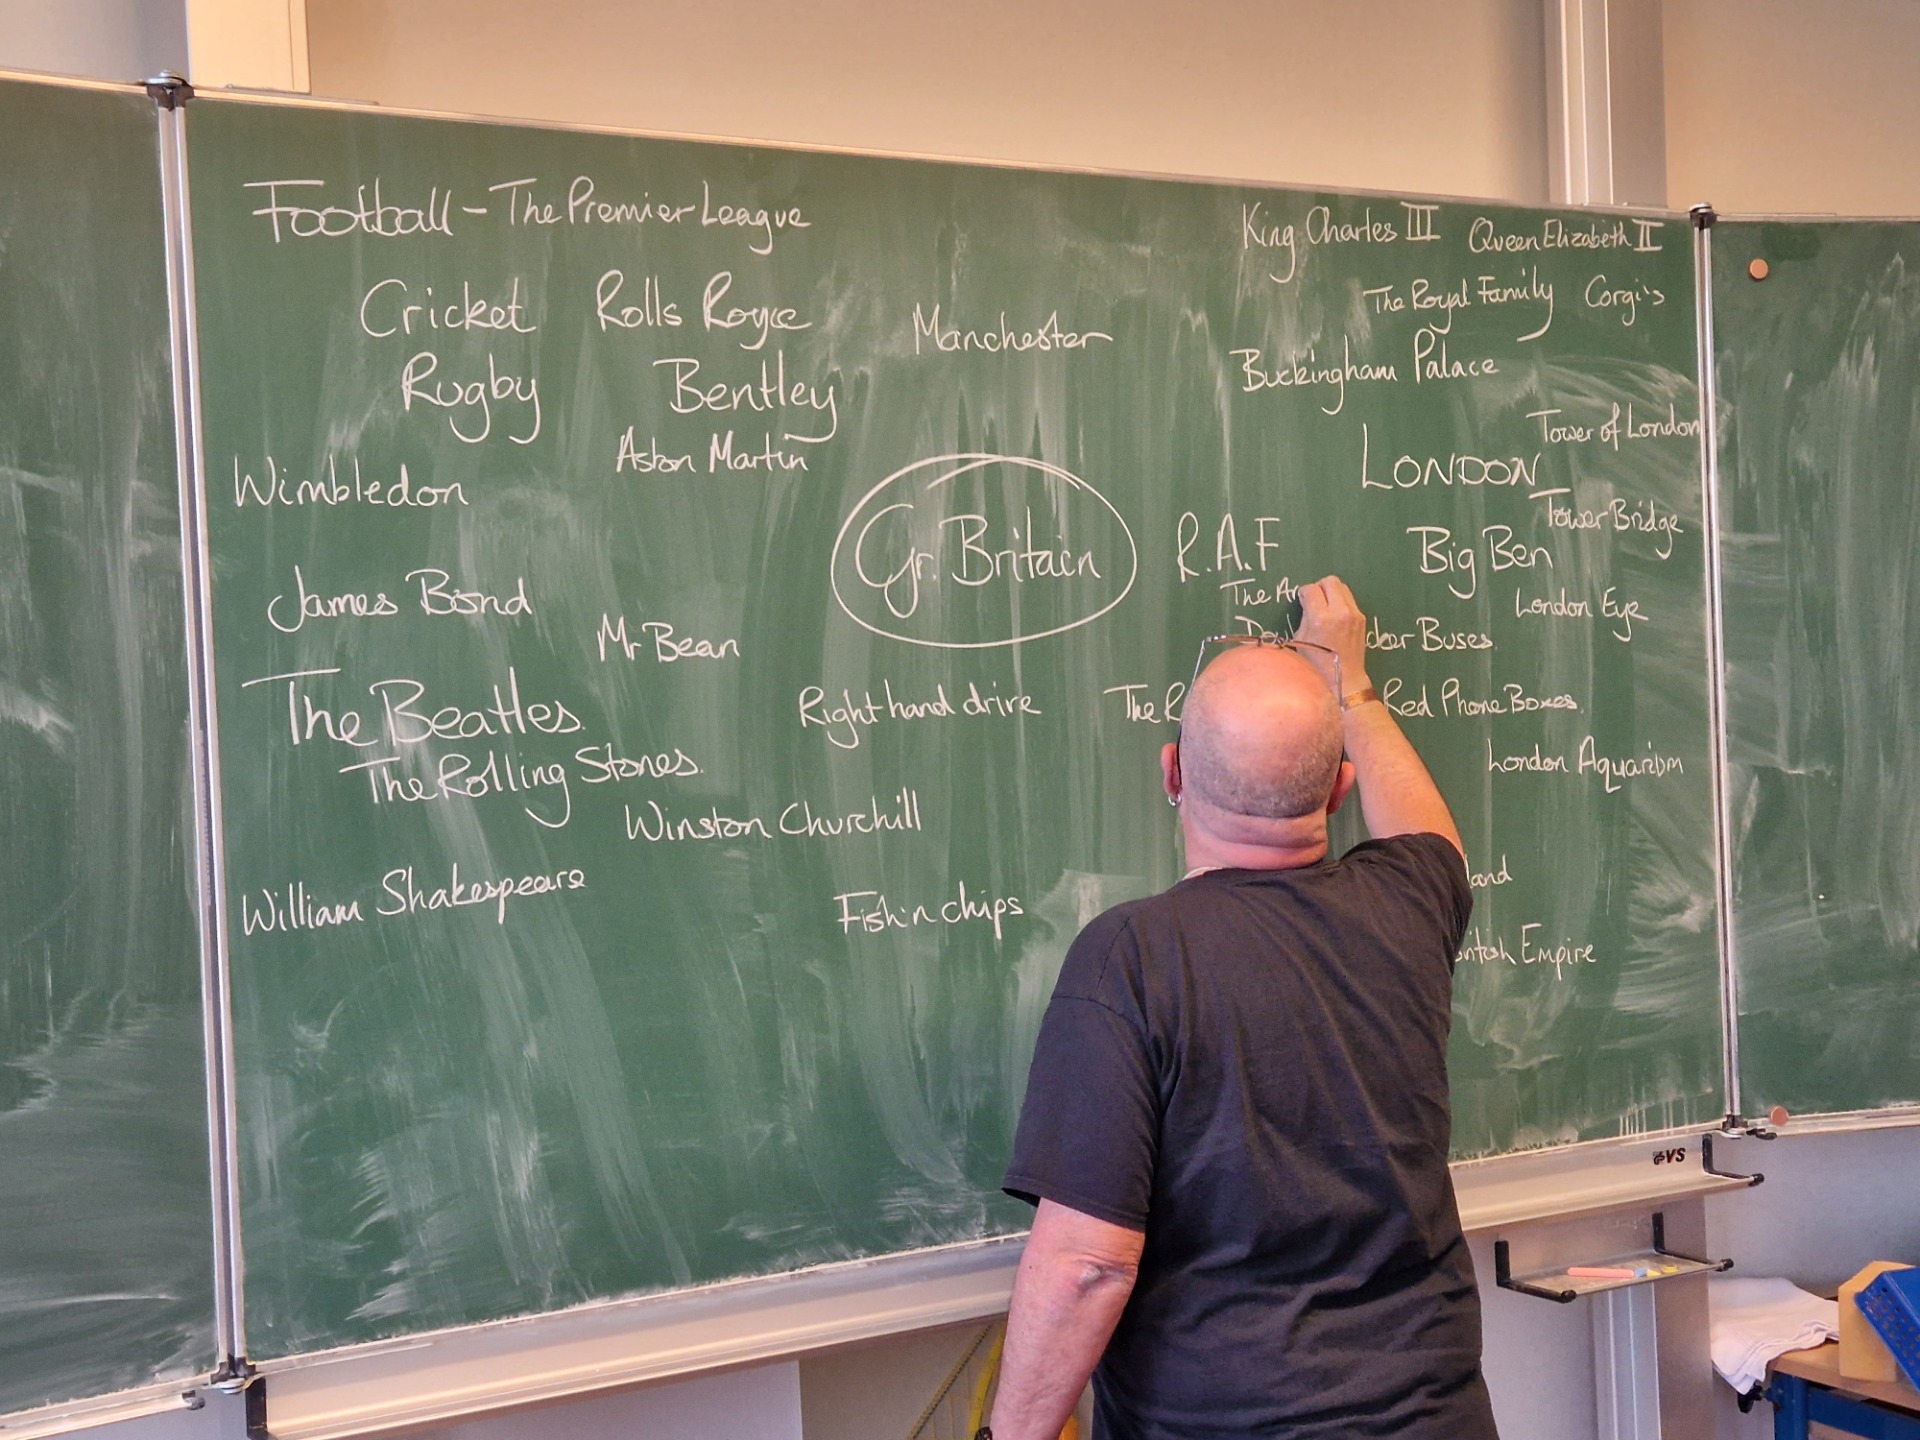 Football - The Premier League
King Charles III
Queen Elizabeth II
Cricket
Rolls Royce
Manchester
The Royal Family
Corgi's
Rugby
Bentley
Buckingham Palace
Aston Martin
Tower of London
Wimbledon
LONDON
Gr. Britain
R.A.F
Tower Bridge
Big Ben
James Bond
The
London Eye
Mr Bean
Buses
The Beatles.
Right hand drive
The
Red Phone Boxes.
The Rolling Stones.
London Aquarium
Winston Churchill
William Shakespeare
Fish'n chips
Empire
VS